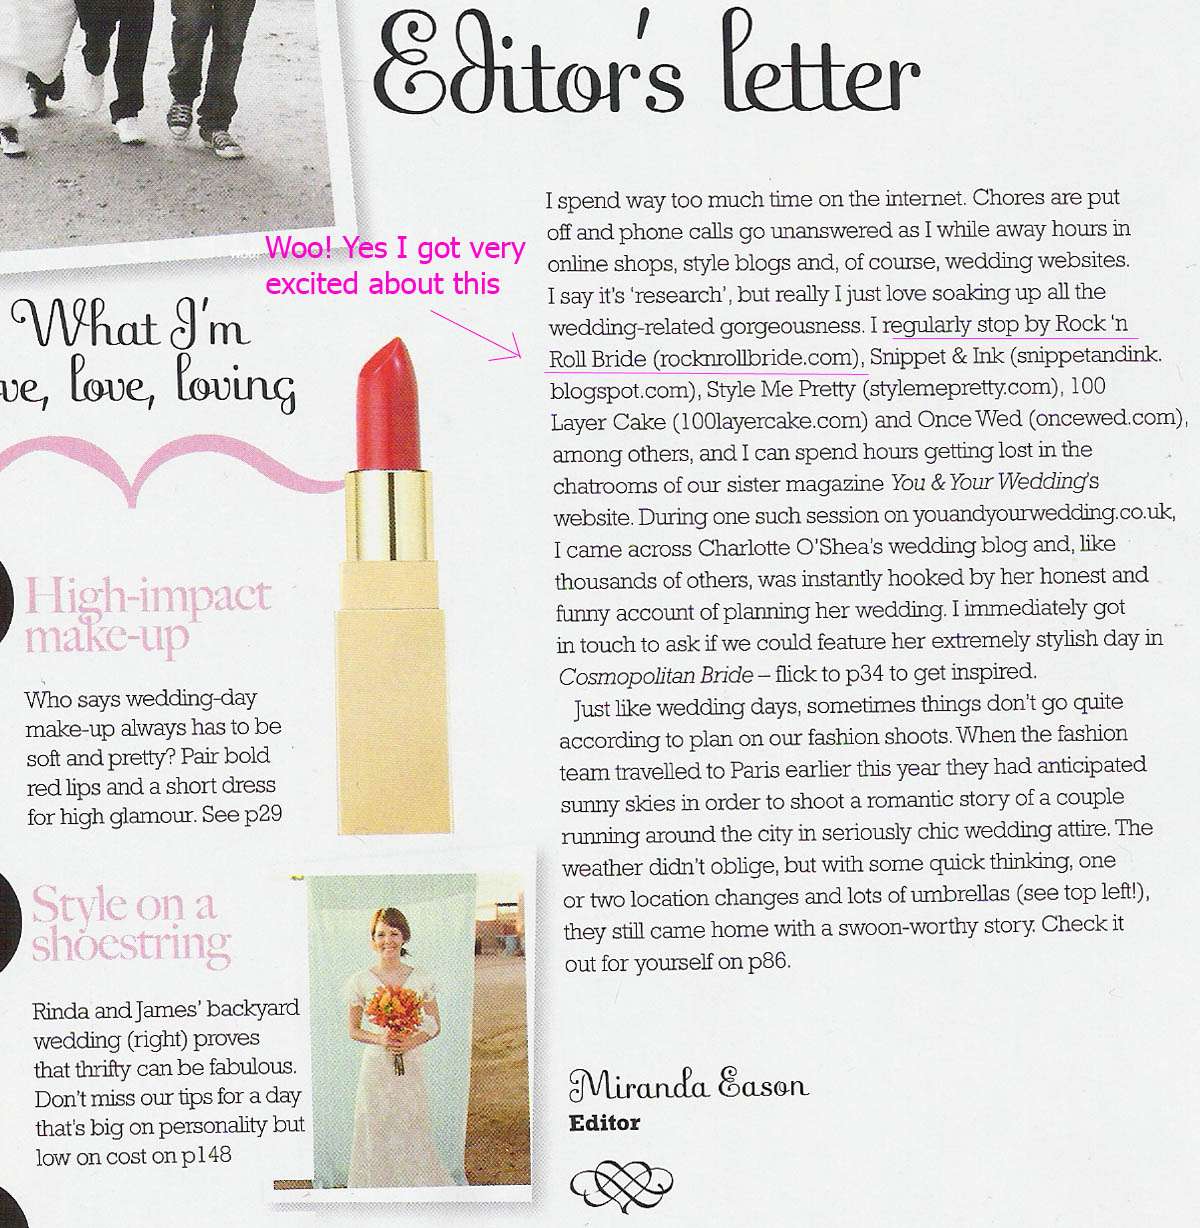 Editor's letter
I spend way too much time on the internet. Chores are put
off and phone calls go unanswered as I while away hours in
online shops, style blogs and, of course, wedding websites.
I say it's 'research', but really I just love soaking up all the
wedding-related gorgeousness. I regularly stop by Rock 'n
Roll Bride (rocknrollbride.com), Snippet & Ink (snippetandink.
blogspot.com), Style Me Pretty (stylemepretty.com), 100
Layer Cake (100layercake.com) and Once Wed (oncewed.com),
among others, and I can spend hours getting lost in the
chatrooms of our sister magazine You & Your Wedding's
website. During one such session on youandyourwedding.co.uk,
I came across Charlotte O'Shea's wedding blog and, like
thousands of others, was instantly hooked by her honest and
funny account of planning her wedding. I immediately got
in touch to ask if we could feature her extremely stylish day in
Cosmopolitan Bride – flick to p34 to get inspired.
Just like wedding days, sometimes things don't go quite
according to plan on our fashion shoots. When the fashion
team travelled to Paris earlier this year they had anticipated
sunny skies in order to shoot a romantic story of a couple
running around the city in seriously chic wedding attire. The
weather didn't oblige, but with some quick thinking, one
or two location changes and lots of umbrellas (see top left!),
they still came home with a swoon-worthy story. Check it
out for yourself on p86.
Miranda Eason
Editor
Woo! Yes I got very
excited about this
What I'm
ve, love, loving
High-impact
make-up
Who says wedding-day
make-up always has to be
soft and pretty? Pair bold
red lips and a short dress
for high glamour. See p29
Style on a
shoestring
Rinda and James' backyard
wedding (right) proves
that thrifty can be fabulous.
Don't miss our tips for a day
that's big on personality but
low on cost on p148